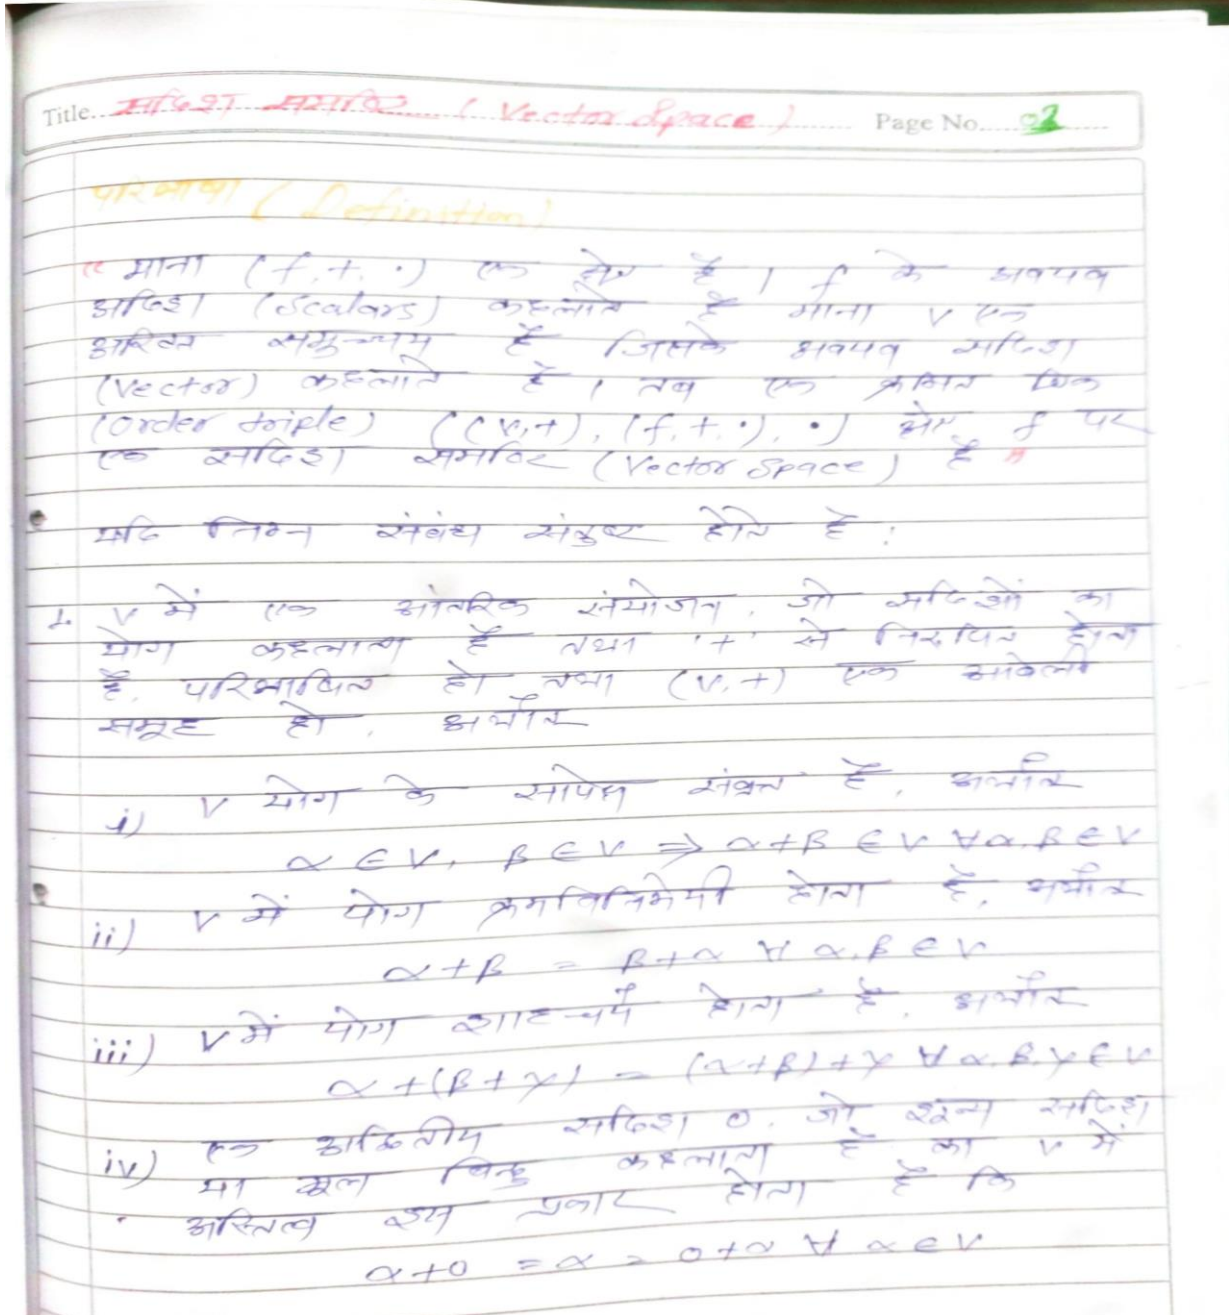 Title. सदिश समष्टि (Vector Space) Page No. 02
परिभाषा (Definition)
“ माना (f, +, ·) एक क्षेत्र है। f के अवयव
अदिश (Scalars) कहलाते है माना V एक
अरिक्त समुच्चय है जिसके अवयव सदिश
(Vector) कहलाते है, तब एक क्रमित त्रिक
(order triple) ((V,+), (f, +, ·), ·) क्षेत्र f पर
एक सदिश समष्टि (Vector Space) है ”
यदि निम्न संबंध संतुष्ट होते है :
1. V में एक आंतरिक संयोजन, जो सदिशों का
योग कहलाता है तथा '+' से निरूपित होता
है, परिभाषित हो तथा (V, +) एक आबेली
समूह हो, अर्थात
i) V योग के सापेक्ष संवृत है, अर्थात
α ∈ V, β ∈ V ⇒ α+β ∈ V ∀ α, β ∈ V
ii) V में योग क्रमविनिमेयी होता है, अर्थात
α+β = β+α ∀ α, β ∈ V
iii) V में योग साहचर्य होता है, अर्थात
α+(β+γ) = (α+β)+γ ∀ α, β, γ ∈ V
iv) एक अद्वितीय सदिश 0, जो शून्य सदिश
या मूल बिन्दु कहलाता है का V में
अस्तित्व इस प्रकार होता है कि
α+0 = α = 0+α ∀ α ∈ V